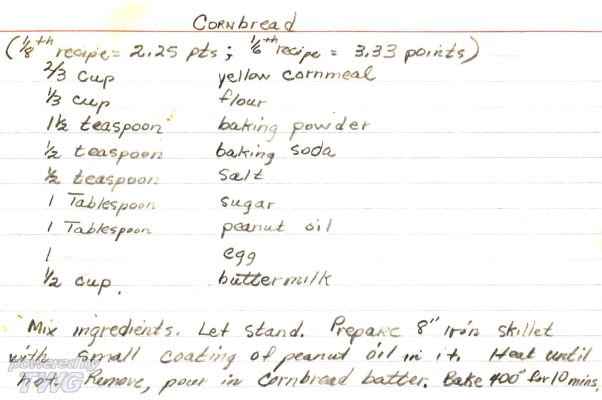 Cornbread
(1/8th recipe = 2.25 pts; 1/6th recipe = 3.33 points)
2/3 cup yellow cornmeal
1/3 cup flour
1 1/2 teaspoon baking powder
1/2 teaspoon baking soda
1/2 teaspoon Salt
1 Tablespoon sugar
1 Tablespoon peanut oil
1 egg
1/2 cup. buttermilk
Mix ingredients. Let stand. Prepare 8" iron skillet
with small coating of peanut oil in it. Heat until
hot. Remove, pour in cornbread batter. Bake 400° for 10 mins,
powered by
TWG